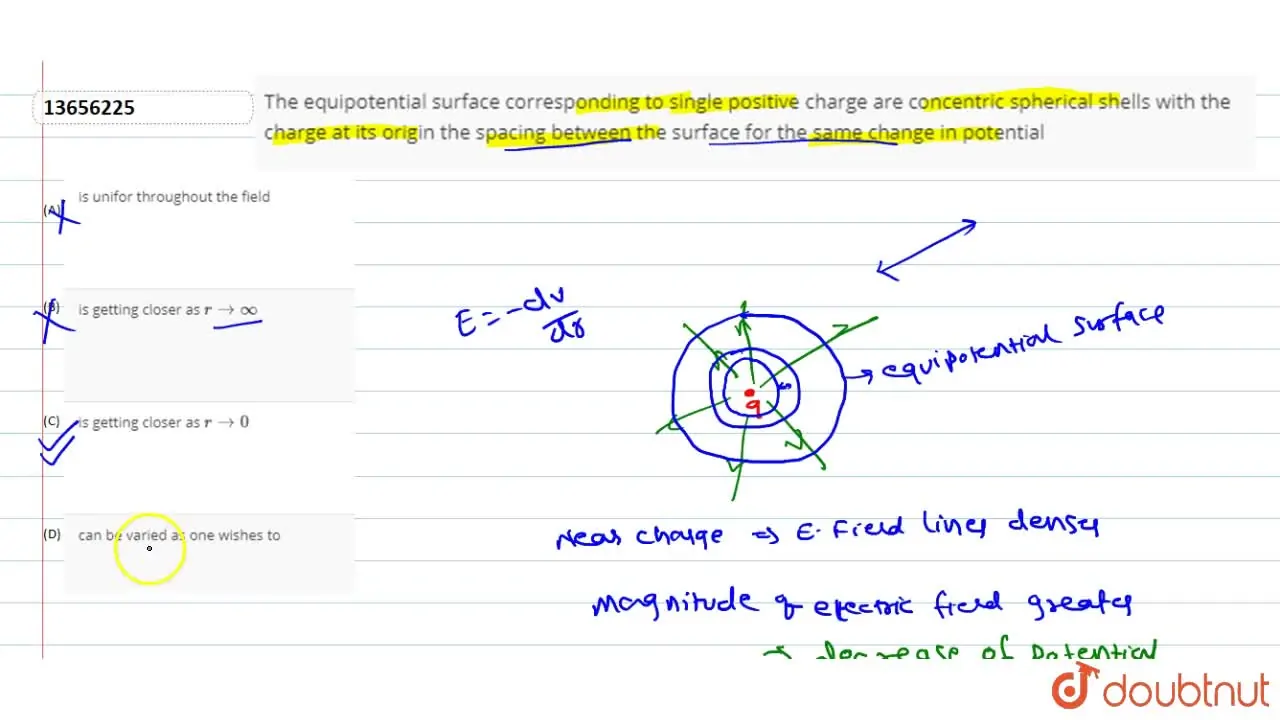 13656225
The equipotential surface corresponding to single positive charge are concentric spherical shells with the
charge at its origin the spacing between the surface for the same change in potential
(A) is unifor throughout the field
(B) is getting closer as r → ∞
(C) is getting closer as r → 0
(D) can be varied as one wishes to
E = -dv/dr
q
→ equipotential surface
Near charge ⇒ E. Field lines denser
magnitude of electric field greater
→ decrease of potential
doubtnut